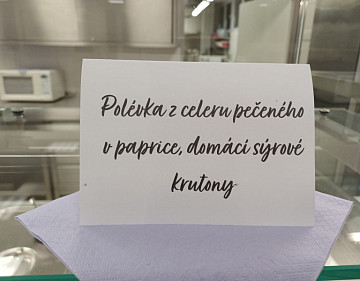 Polévka z celeru pečeného
v paprice, domácí sýrové
krutony